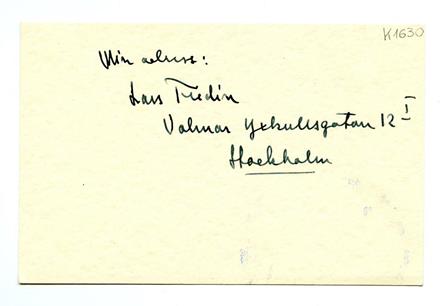 K1630
Min adress:
Lars Fredin
Volmar Yxkullsgatan 12 I
Stockholm